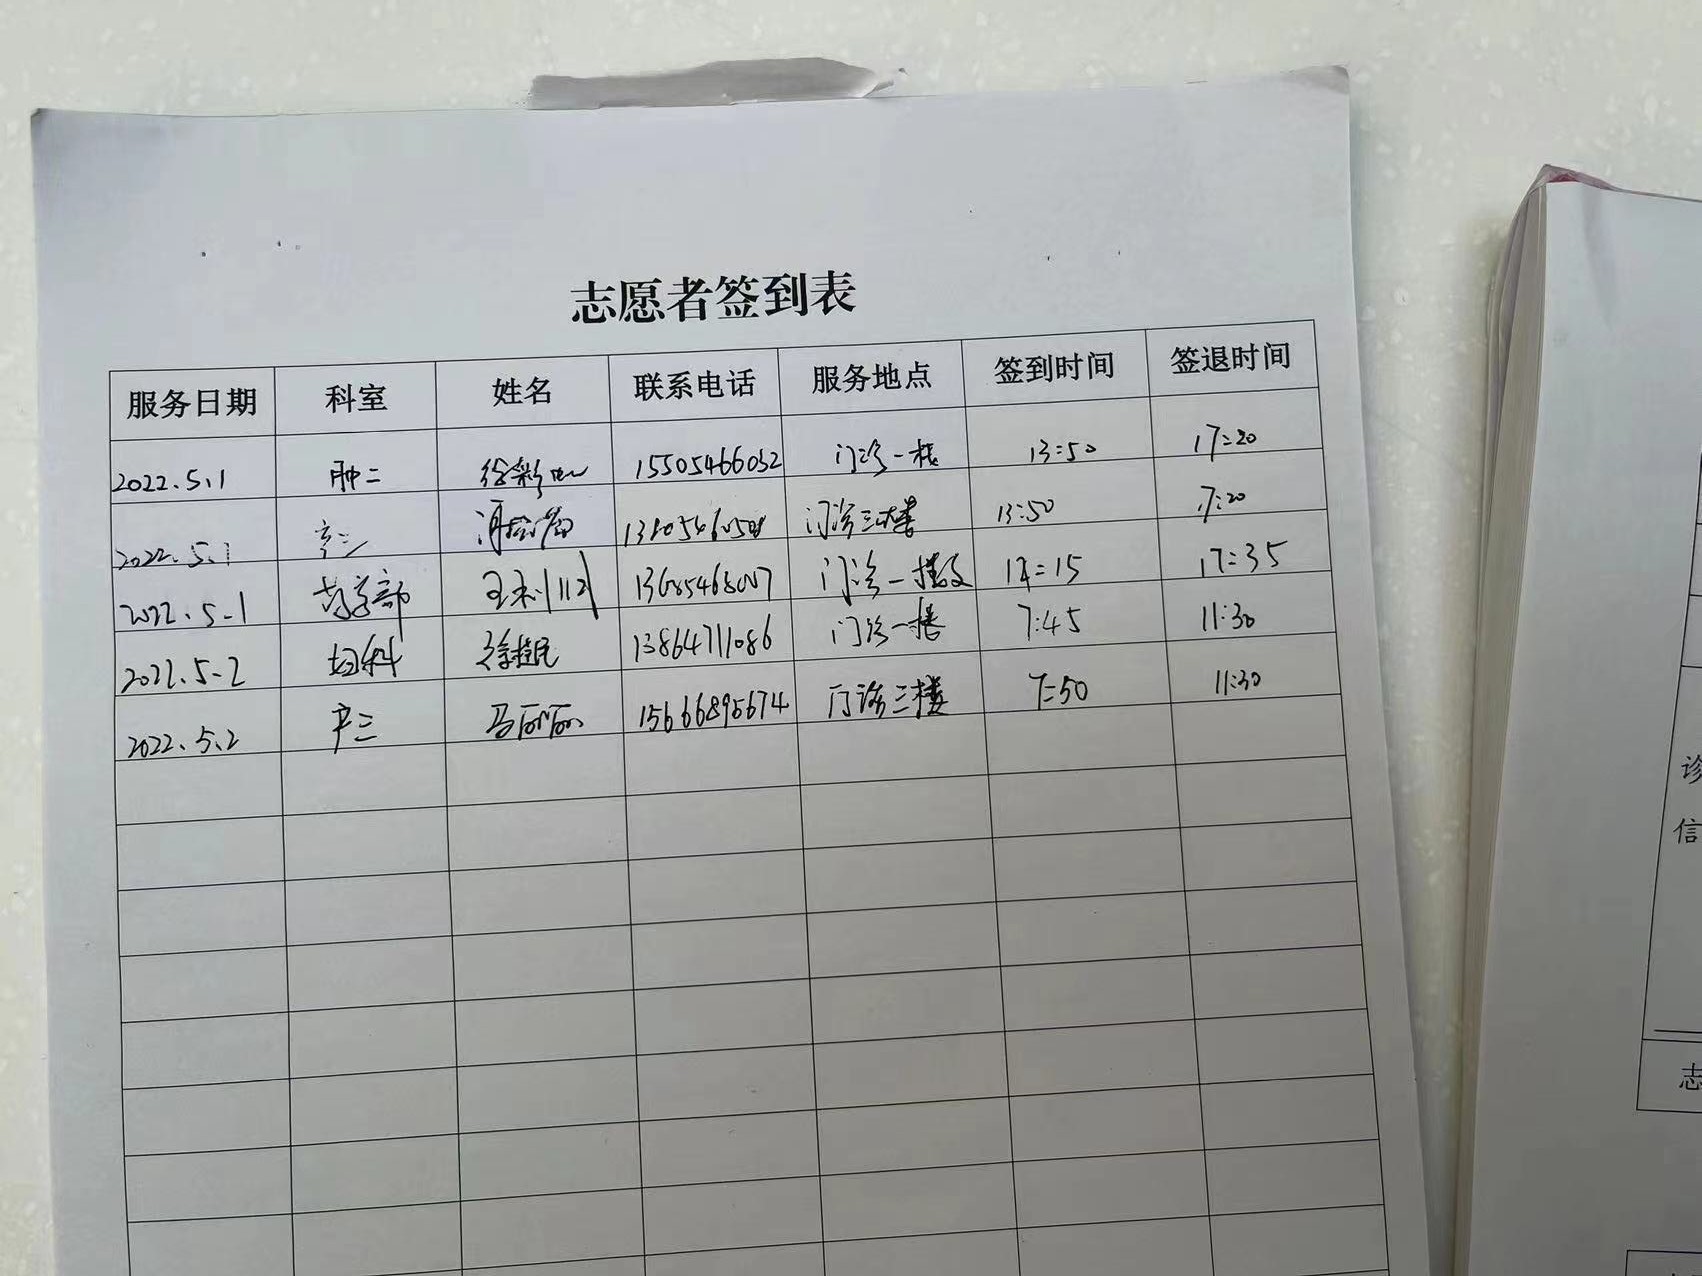 志愿者签到表
服务日期 科室 姓名 联系电话 服务地点 签到时间 签退时间
2022.5.1 肿二 徐彩 15505466032 门诊一楼 13:50 17:20
2022.5.1 产三 13:50 17:20
门诊三楼
2022.5.1 药学部 王利 门诊一楼 14:15 17:35
2022.5.2 妇科 徐 13864711086 门诊一楼 7:45 11:30
2022.5.2 产三 马丽丽 15666895674 门诊三楼 7:50 11:30
诊
信
志